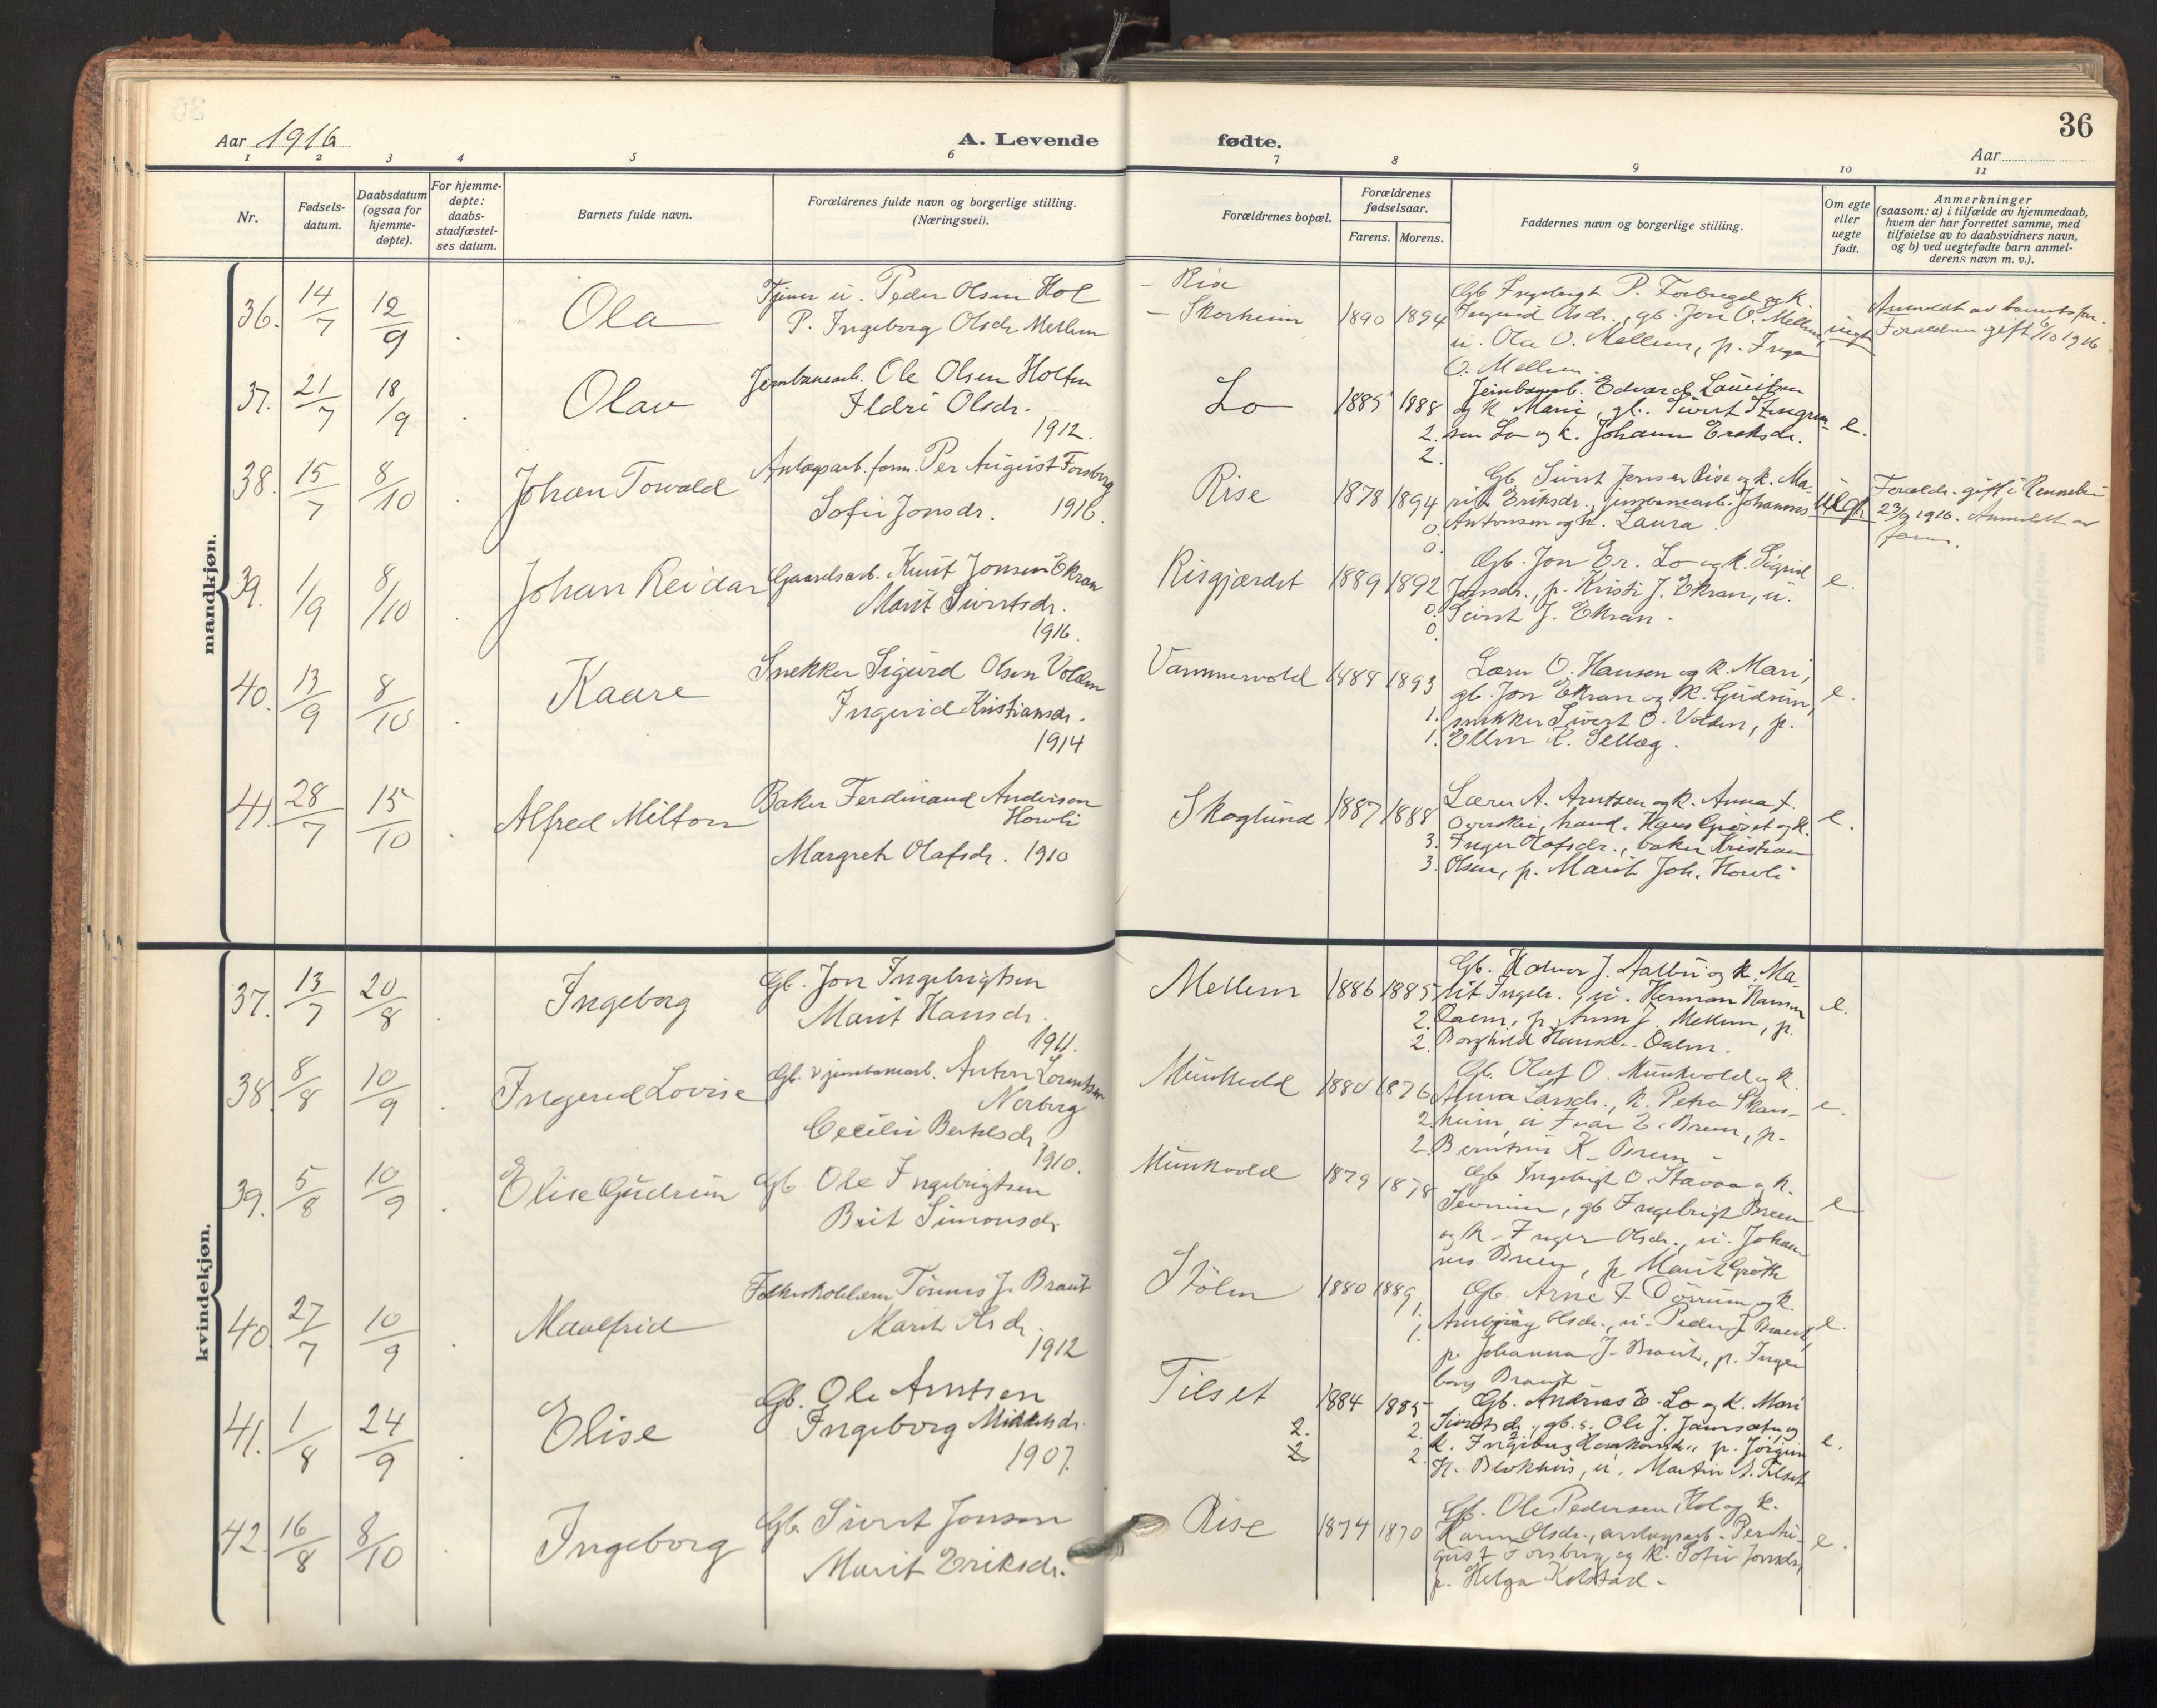 36
Aar 1916
A. Levende
fødte.
Aar
1 2 3 4 5 6 7 8 9 10 11
Nr.
Fødsels-
datum.
Daabsdatum
(ogsaa for
hjemme-
døpte).
For hjemme-
døpte:
daabs-
stadfæstel-
ses datum.
Barnets fulde navn.
Forældrenes fulde navn og borgerlige stilling.
(Næringsvei).
Forældrenes bopæl.
Forældrenes
fødselsaar.
Farens. Morens.
Faddernes navn og borgerlige stilling.
Om egte
eller
uegte
født.
Anmerkninger
(saasom: a) i tilfælde av hjemmedaab,
hvem der har forrettet samme, med
tilføielse av to daabsvidners navn,
og b) ved uegtefødte barn anmel-
derens navn m. v.).
mandkjøn.
36. 14/7 12/9 Ola
Tjener u. Peder Olsen Hol
P. Ingeborg Olsdr. Mellem
Rise
Skorheim 1890 1894
Gb. Ingebrigt P. Forbregd og k.
Ingerid Olsdr., gb. Jon O. Mellem,
u. Ola O. Mellem, p. Inga
O. Mellem
uegte
Anmeldt av barnets far.
Forældrene gift 6/10 1916
37. 21/7 18/9 Olav
Jernbanearb. Ole Olsen Holten
Ildri Olsdr.
1912.
Lo 1885 1888
2.
2.
Jernbanearb. Edvard
og k. Marie, gb. Sivert
sen Lo og k. Johanna Ereksdr.
e.
38. 15/7 8/10 Johan Torvald
Anlægsarb. Per August Forsberg
Sofie Jonsdr. 1916.
Rise 1878 1894
0.
0.
Gb. Sivert Jonsen Rise og k. Ma-
rit Eriksdr., jernbanearb. Johannes
Antonsen og k. Laura
uegte
Forældr. gift i Rennebu
23/9 1916. Anmeldt av
faren.
39. 1/9 8/10 Johan Reidar
Gaardsarb. Knut Jonsen Ekran
Marit Sivertsdr.
1916.
Risgjærdet 1889 1892
0.
0.
Gb. Jon Er. Lo og k. Sigrid
Jonsdr., p. Kristi J. Ekran, u.
Sivert J. Ekran.
e.
40. 13/9 8/10 Kaare
Snekker Sigurd Olsen Volden
Ingerid Kristiansdr.
1914
Vammervold 1888 1893
1.
1.
Lærer O. Hansen og k. Mari,
gb. Jon Ekran og k. Gudrun,
snekker Sivert O. Volden, p.
Ellen K.
e.
41. 28/7 15/10 Alfred Milton
Baker Ferdinand Andersen
Howli
Margreth Olafsdr. 1910
Skoglund 1887 1888
3.
3.
Lærer A. Arntsen og k. Anna f.
hand. Hans Grøset og k.
Inger Olafsdr., baker Kristian
Olsen, p. Marit Joh. Howli
e.
kvindekjøn.
37. 13/7 20/8 Ingeborg
Gb. Jon Ingebrigtsen
Marit Hansdr.
1911.
Mellem 1886 1885
2.
2.
Gb. Halvor J. Aalbu og k. Ma-
rit Ingebr., u. Herman Hansen
p. J. Mellem, p.
Borghild Hansdr.
e.
38. 8/8 10/9 Ingerid Lovise
Gb. & jernbanearb. Anton Lorentsen
Norberg
Cecilie Bertelsdr.
1910.
Munkvold 1880 1876
2.
2.
Gb. Olaf O. Munkvold og k.
Anna Larsdr., k. Petra Skors-
heim, u. Ivar E. Breen, p.
K. Breen
e.
39. 5/8 10/9 Elise Gudrun
Gb. Ole Ingebrigtsen
Brit Simonsdr.
Munkvold 1879 1878
Gb. Ingebrigt O. Stavaa og k.
gb. Ingebrigt Breen
og k. Inger Olsdr., u. Johan-
nes Breen, p. Marit Grøtte
e.
40. 27/7 10/9 Maalfrid
Folkeskolelærer Tønnes J. Braut
Marit Olsdr.
1912
Stølen 1880 1889
1.
1.
Gb. Arne I. Dørrum og k.
Olsdr., u. Peder J. Braut,
p. Johanna J. Braut, p. Inge-
borg Braut
e.
41. 1/8 24/9 Elise
Gb. Ole Arntsen
Ingeborg Mikkelsdr.
1907.
Tilset 1884 1885
2. 2.
2. 2.
Gb. Andreas E. Lo og k. Mari
Sivertsdr., gb. s. Ole J. og
k. Ingeborg p. Jørgine
H. Blokhus, u. Martin A. Tilset
e.
42. 16/8 8/10 Ingeborg
Gb. Sivert Jonsen
Marit Eriksdr.
Rise 1874 1870
Gb. Ole Pedersen Hol og k.
Karen Olsdr., anlægsarb. Per Au-
gust Forsberg og k. Sofie Jonsdr.,
p. Helga Kolstad.
e.